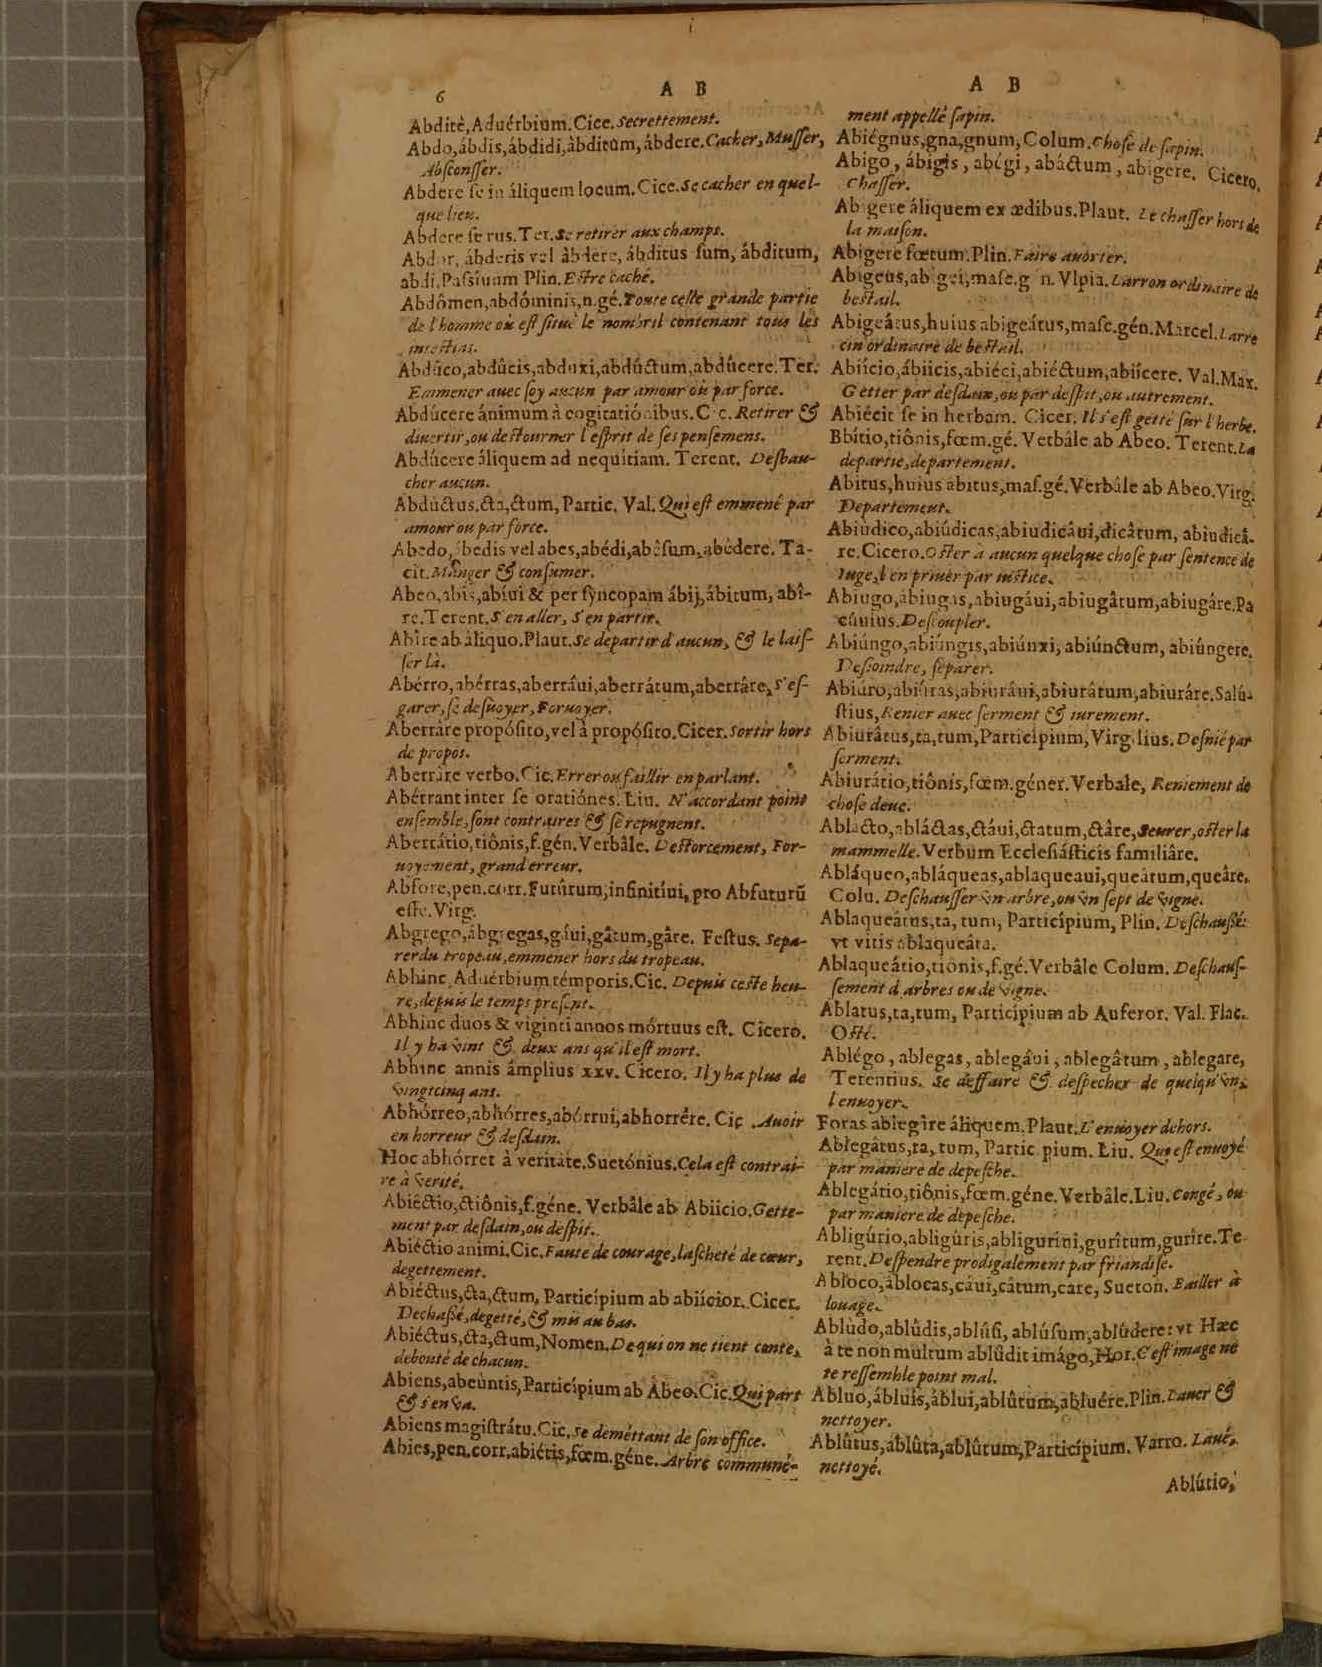 6
A B
A B
Abditè, Aduérbium. Cice. Secrettement.
Abdo, ábdis, ábdidi, àbditũm, ábdere. Cacher, Musser,
Absconsser.
Abdere se in áliquem locum. Cice. Se cacher en quel-
que lieu.
Abdere se rus. Ter. Se retirer aux champs.
Abdor, ábderis vel àbdere, ábditus sum, ábditum,
abdi, Passiuum Plin. Estre caché.
Abdômen, abdóminis, n. gé. Toute celle grande partie
de l'homme où est situè le nombril contenant tous les
intestins.
Abdûco, abdûcis, abduxi, abdúctum, abdûcere. Ter.
Emmener auec soy aucun par amour ou par force.
Abdùcere ánimum à cogitatiónibus. Cic. Retirer &
diuertir, ou destourner l'esprit de ses pensemens.
Abdúcere áliquem ad nequitiam. Terent. Desbau-
cher aucun.
Abdúctus, cta, ctum, Partic. Val. Qui est emmené par
amour ou par force.
Abedo, ábedis vel abes, abédi, abêsum, abédere. Ta-
cit. Manger & consumer.
Abeo, abis, abíui & per syncopam ábij, ábitum, abî-
re. Terent. S'en aller, S'en partir.
Abîre ab àliquo. Plaut. Se departir d'aucun, & le lais-
ser là.
Abérro, abérras, aberráui, aberrátum, aberrâre, S'es-
garer, se desuoyer, Foruoyer.
Aberrâre propósito, vel à propósito. Cicer. Sortir hors
de propos.
Aberràre verbo. Cic. Errer ou faillir en parlant.
Abérrant inter se oratiónes. Liu. N'accordant point
ensemble, sont contraires & se repugnent.
Aberrátio, tiônis, f. gén. Verbâle. Destorcement, For-
uoyement, grand erreur.
Abfore, pen. corr. Futûrum, infinitíui, pro Abfuturũ
esse. Virg.
Abgrego, ábgregas, gáui, gâtum, gâre. Festus. Sepa-
rer du tropeau, emmener hors du tropeau.
Abhinc, Aduérbium témporis. Cic. Depuis ceste heu-
re, depuis le temps present.
Abhinc duos & viginti annos mórtuus est. Cicero.
Il y ha vint & deux ans qu'il est mort.
Abhinc annis ámplius xxv. Cicero. Il y ha plus de
vingtcinq ans.
Abhórreo, abhórres, abórrui, abhorrére. Cic. Auoir
en horreur & desdain.
Hoc abhórret à veritáte. Suetónius. Cela est contrai-
re à verité.
Abiéctio, ctiônis, f. géne. Verbâle ab Abiicio. Gette-
ment par desdain, ou despit.
Abiéctio animi. Cic. Faute de courage, lascheté de cœur,
degettement.
Abiéctus, cta, ctum, Participium ab abiícior. Cicer.
Dechassé, degetté, & mis au bas.
Abiéctus, cta, ctum, Nomen. De qui on ne tient conte,
debouté de chacun.
Abiens, abeùntis, Participium ab Abeo. Cic. Qui part
& s'en va.
Abiens magistrátu. Cic. se deméttant de son office.
Abies, pen. corr. abiétis, fœm. géne. Arbre communé-
ment appellé sapin.
Abiégnus, gna, gnum, Colum. Chose de sapin.
Abigo, ábigis, abégi, abáctum, abigere. Cicero.
Chasser.
Abigere áliquem ex ædibus. Plaut. Le chasser hors de
la maison.
Abigere fœtum. Plin. Faire auorter.
Abigeus, abigei, masc. gén. Vlpia. Larron ordinaire de
bestail.
Abigeátus, huius abigeátus, masc. gén. Marcel. Larre
cin ordinaire de bestail.
Abiício, ábiicis, abiéci, abiéctum, abiícere. Val. Max.
Getter par desdain, ou par despit, ou autrement.
Abiécit se in herbam. Cicer. Il s'est getté sur l'herbe.
Bbítio, tiônis, fœm. gé. Verbâle ab Abeo. Terent. La
departie, departement.
Abitus, huius abitus, mas. gé. Verbâle ab Abeo. Virg.
Departement.
Abiùdico, abiúdicas, abiudicâui, dicâtum, abiudicâ-
re. Cicero. Oster à aucun quelque chose par sentence de
Iuge, l'en priuer par iustice.
Abiugo, ábiugas, abiugáui, abiugâtum, abiugáre. Pa
cúuius. Descoupler.
Abiúngo, abiúngis, abiúnxi, abiúnctum, abiûngere.
Desioindre, separer.
Abiúro, abiúras, abiurâui, abiurâtum, abiuráre. Salú-
stius, Renier auec serment & iurement.
Abiurâtus, ta, tum, Participium, Virgilius. Desnié par
serment.
Abiurátio, tiônis, fœm. géner. Verbale, Reniement de
chose deue.
Ablacto, abláctas, ctáui, ctatum, ctâre, Seurer, oster la
mammelle. Verbum Ecclesiásticis familiâre.
Abláqueo, abláqueas, ablaqueaui, queátum, queâre.
Colu. Deschausser vn arbre, ou vn sept de vigne.
Ablaqueátus, ta, tum, Participium, Plin. Deschaussé:
vt vitis ablaqueáta.
Ablaqueátio, tiônis, f. gé. Verbâle Colum. Deschaus-
sement d'arbres ou de vigne.
Ablatus, ta, tum, Participium ab Auferor. Val. Flac.
Osté.
Ablégo, ablegas, ablegáui, ablegâtum, ablegare,
Terentius. Se deffaire & despecher de quelqu'vn,
l'enuoyer.
Foras ablegâre áliquem. Plaut. L'enuoyer dehors.
Ablegâtus, ta, tum, Participium. Liu. Qui est enuoyé
par maniere de depesche.
Ablegátio, tiônis, fœm. géne. Verbâle. Liu. Congé, ou
par maniere de depesche.
Abligúrio, abligúris, abliguríui, gurîtum, gurîre. Te-
rent. Despendre prodigalement par friandise.
Abloco, áblocas, cáui, câtum, care, Sueton. Bailler à
louage.
Abludo, ablûdis, ablúsi, ablúsum, ablûdere: vt Hæc
à te non multum ablûdit imágo, Hor. C'est image ne
te ressemble point mal.
Abluo, ábluis, áblui, ablûtum, abluére. Plin. Lauer &
nettoyer.
Ablûtus, ablûta, ablûtum, Participium. Varro. Laué,
nettoyé.
Ablútio,